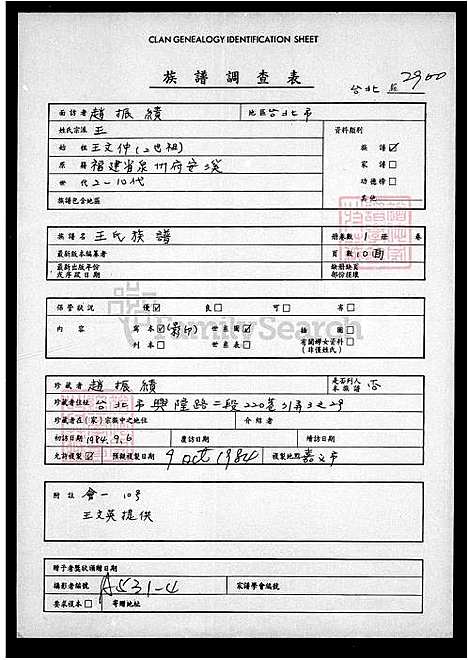 CLAN GENEALOGY IDENTIFICATION SHEET
族譜調查表
台北 區 2900
面訪者 趙振績 地區 台北市
姓氏宗派 王 資料類別
始祖 王文仲(2世祖) 族譜 ☑
原籍 福建省泉州府安溪 家譜 □
世代 2-10代 功德榜 □
族譜包含地區 其他
族譜名 王氏族譜 册卷數 1 册 卷
最新版本編纂者 頁數 10面
最新出版年份或序跋日期 缺册缺頁部份經壞
保管狀況 優 ☑ 良 □ 可 □ 劣 □
內容 寫本 ☑ (影印) 世系圖 ☑ 插圖 □
刊本 □ 世系表 □ 有關婦女資料 □ (非僅姓氏)
FamilySearch
珍藏者 趙振績 是否列入本族譜 否
珍藏者住址 台北市興隆路二段220巷31弄3之29
珍藏者在(家)宗族中之地位 介紹者
初訪日期 1984.9.6 覆訪日期 增訪日期
允許複製 ☑ 預擬複製日期 9 Oct 1984 複製地點 嘉義市
附註 會一 10号
王文英提供
贈予者獎狀頒贈日期
攝影者編號 A531-4 家譜學會編號
要求複本 □ 寄贈地址